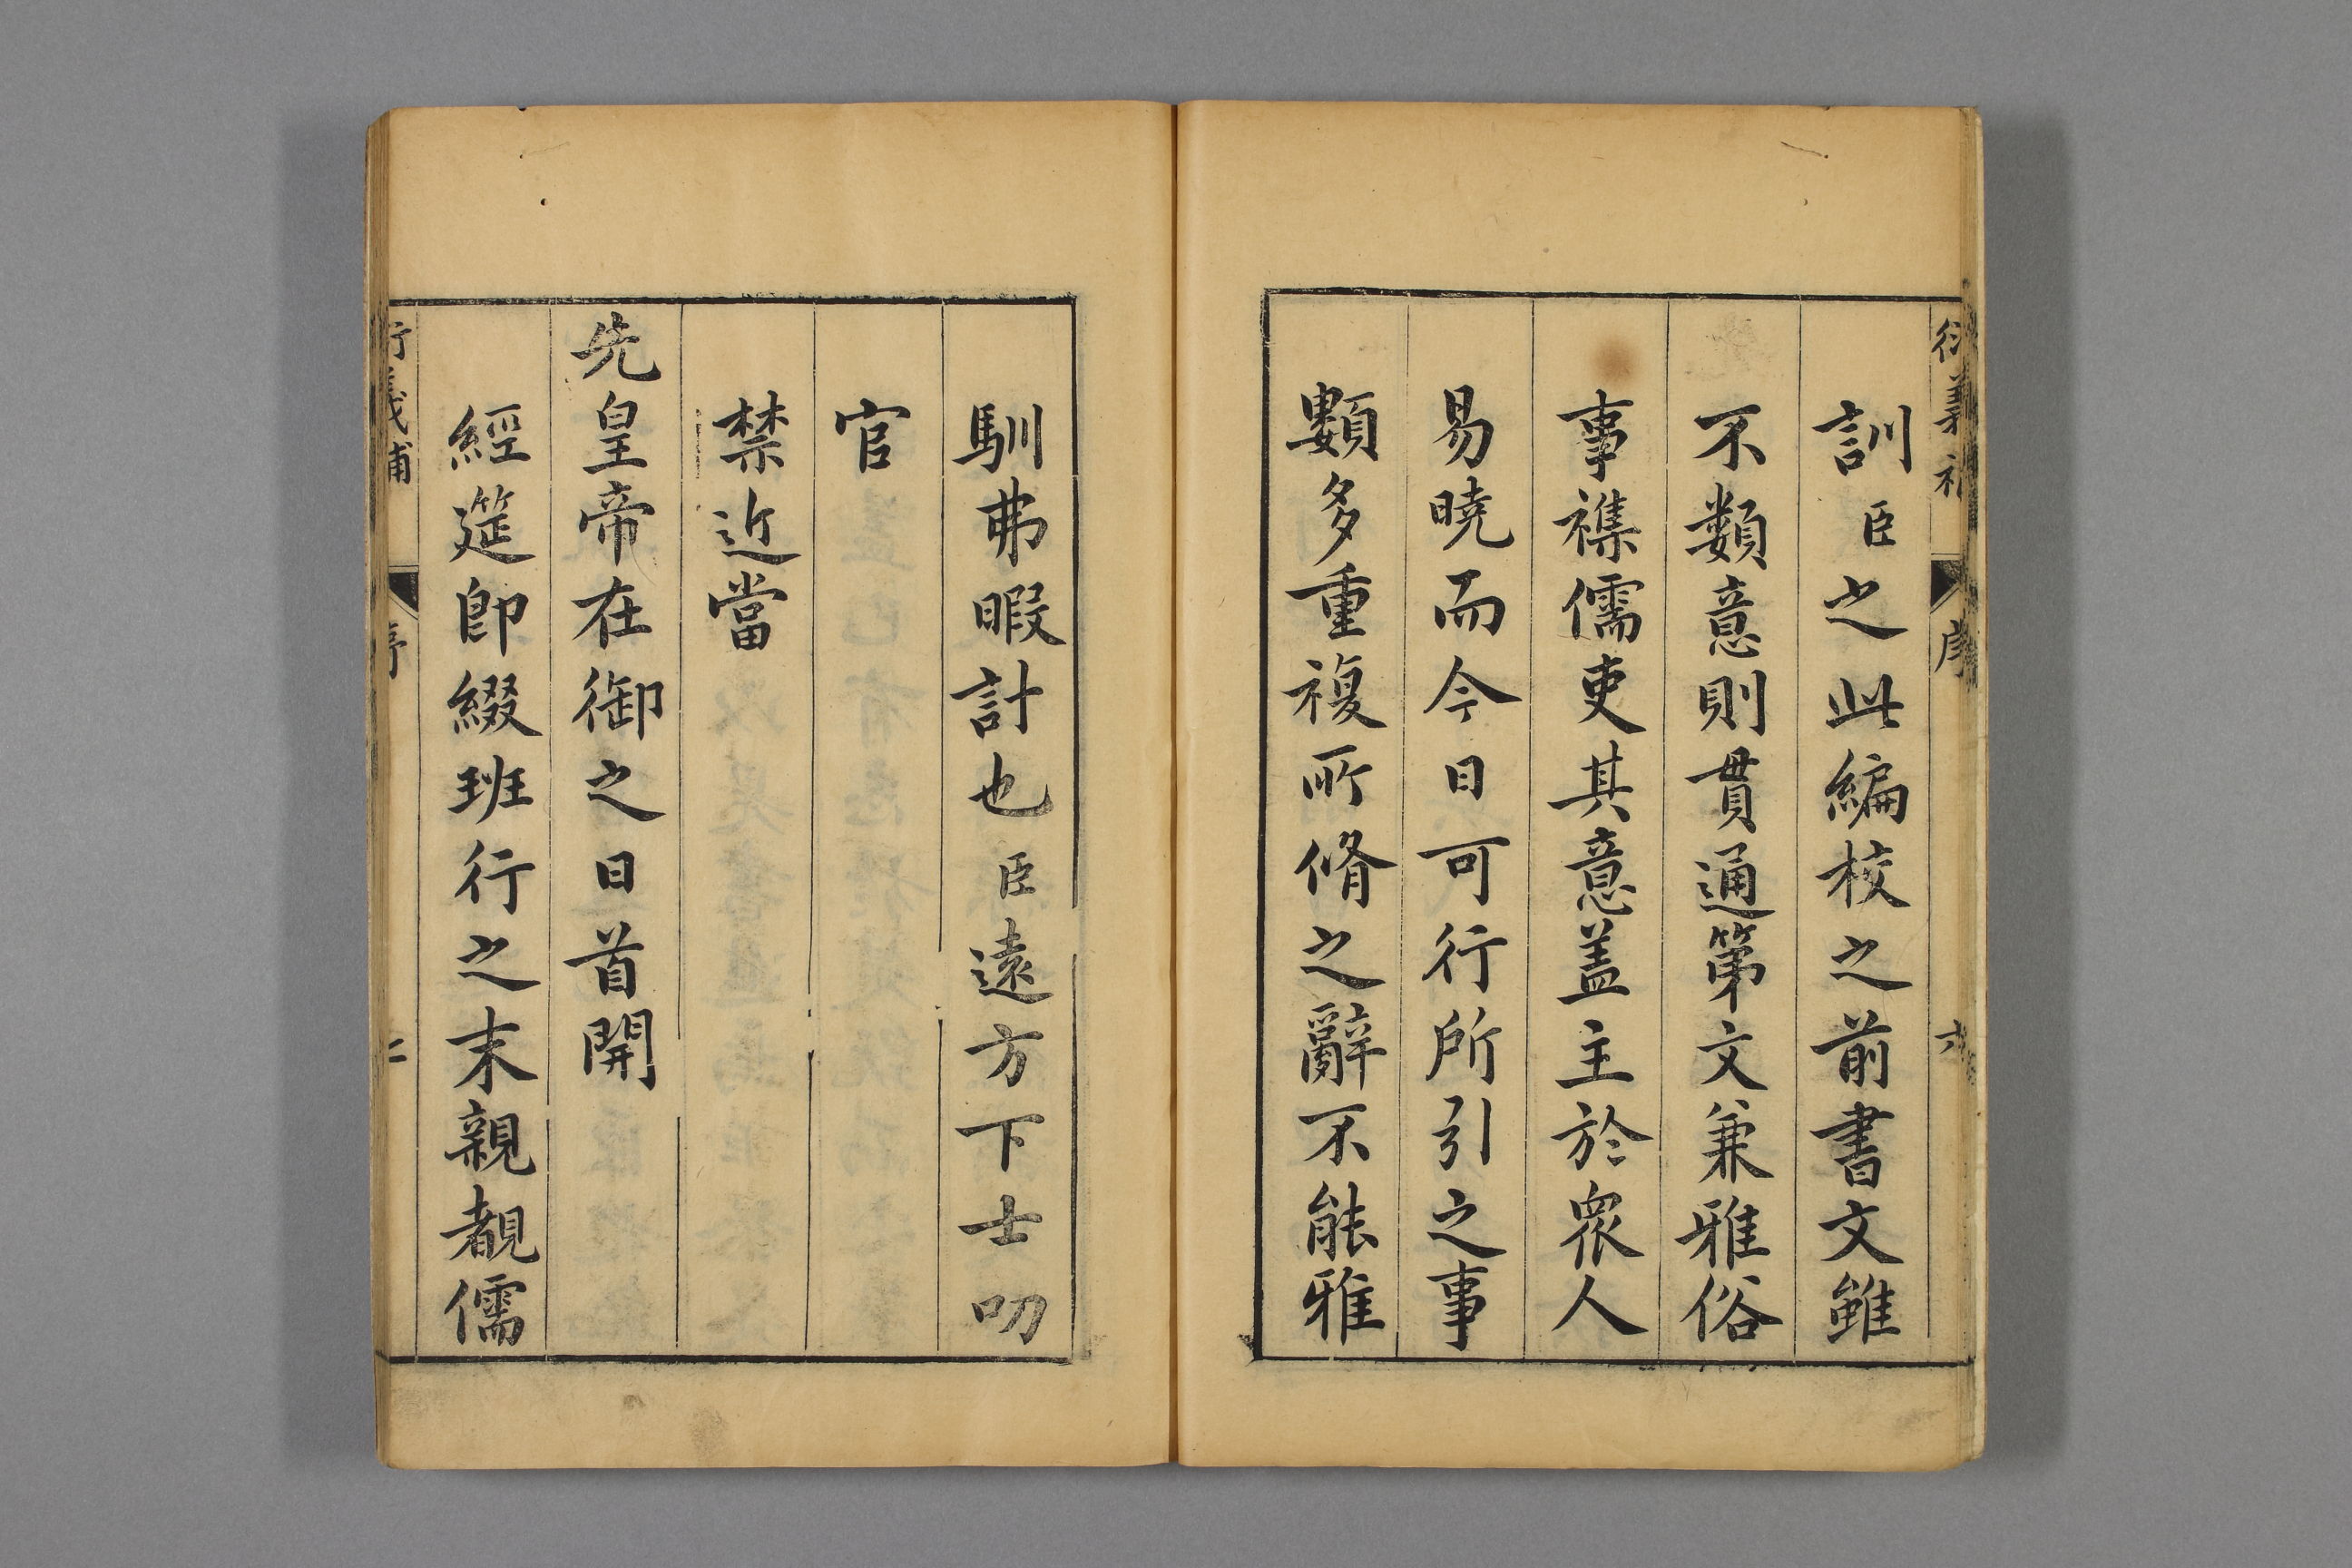 衍義補
序
六
訓臣之此編校之前書文雖
不類意則貫通第文兼雅俗
事襍儒吏其意盖主於衆人
易曉而今日可行所引之事
類多重複所脩之辭不能雅
馴弗暇計也臣遠方下士叨
官
禁近當
先皇帝在御之日首開
經筵即綴班行之末親覩儒
衍義補
序